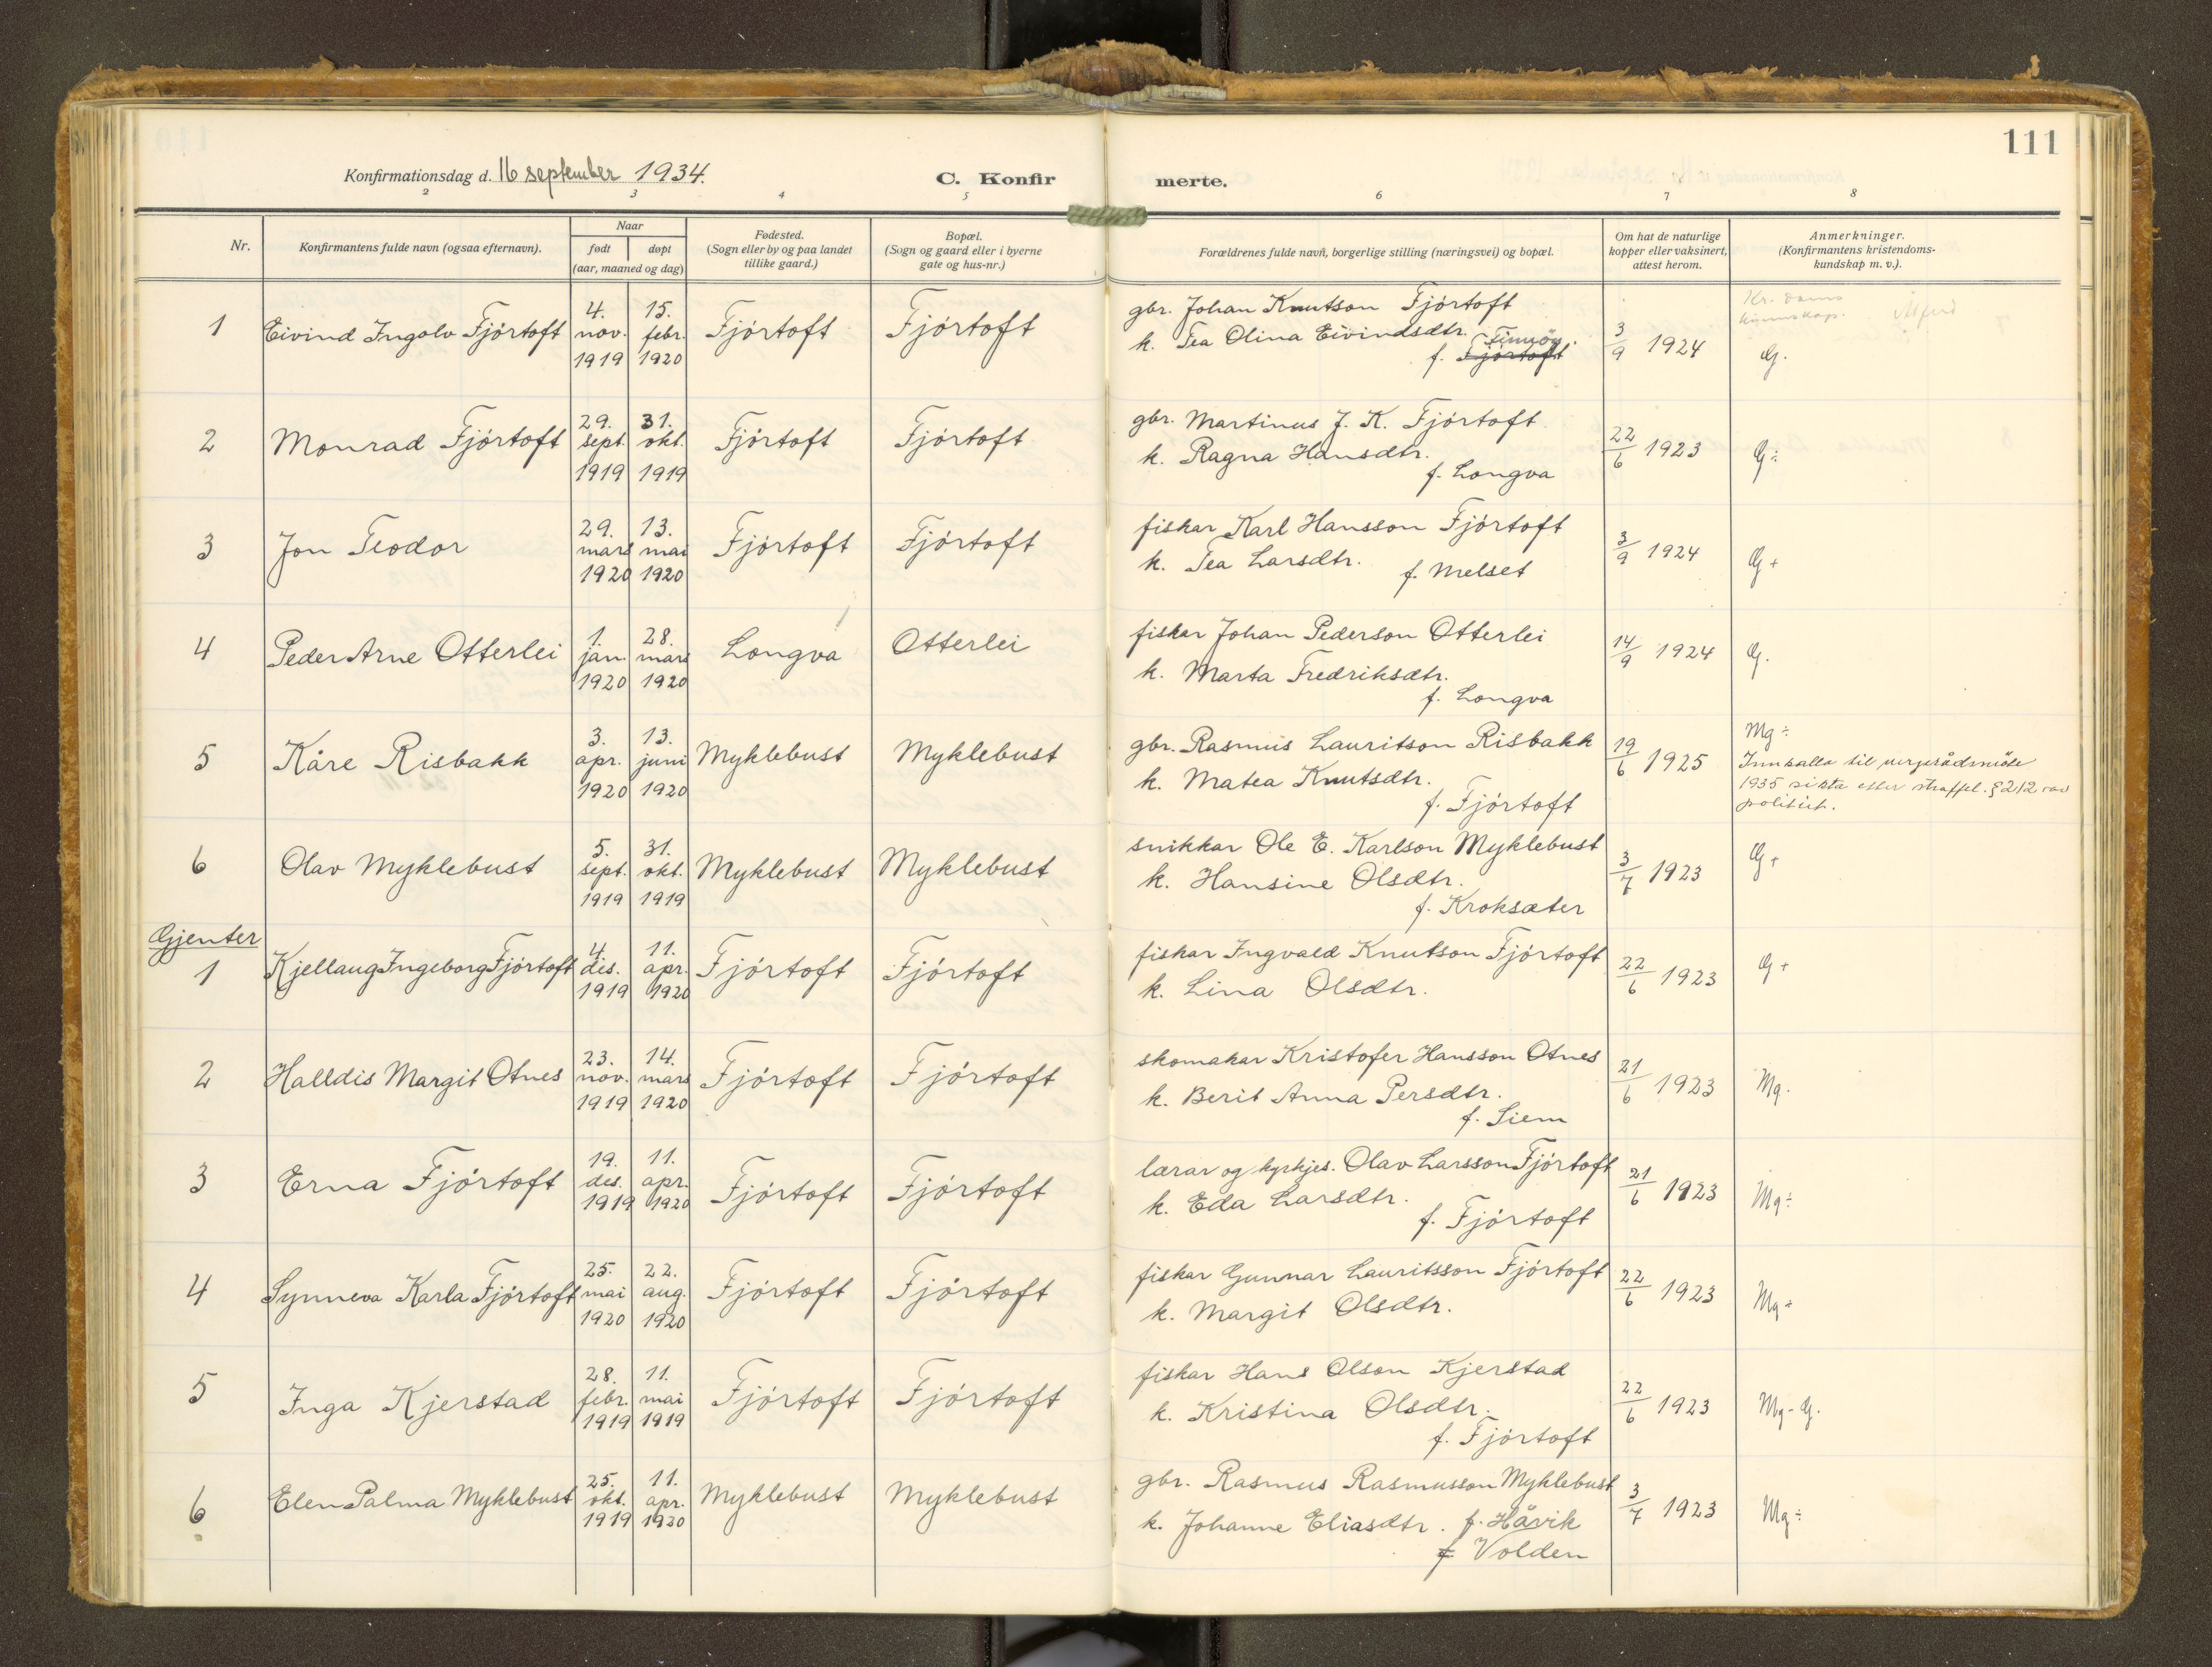 111
Konfirmationsdag d. 16 september 1934.
C. Konfirmerte.
2 3 4 5 6 7 8
Nr.
Konfirmantens fulde navn (ogsaa efternavn).
Naar
født
døpt
(aar, maaned og dag)
Fødested.
(Sogn eller by og paa landet
tillike gaard.)
Bopæl.
(Sogn og gaard eller i byerne
gate og hus-nr.)
Forældrenes fulde navn, borgerlige stilling (næringsvei) og bopæl.
Om hat de naturlige
kopper eller vaksinert,
attest herom.
Anmerkninger.
(Konfirmantens kristendoms-
kundskap m. v.).
1 Eivind Ingolv Fjórtoft 4. nov. 1919 15. febr. 1920 Fjórtoft Fjórtoft
gbr. Johan Knutson Fjórtoft
k. Tea Olina Eivindsdtr. Finnöy.
f. Fjórtoft
3/9 1924
Kr. doms
kunnskap.
G.
2 Monrad Fjórtoft 29. sept. 1919 31. okt. 1919 Fjórtoft Fjórtoft
gbr. Martinus J. K. Fjórtoft
k. Ragna Hansdtr.
f. Longva
22/6 1923 G÷
3 Jon Teodor 29. mars 1920 13. mai 1920 Fjórtoft Fjórtoft
fiskar Karl Hansson Fjórtoft
k. Tea Larsdtr.
f. Melset
3/9 1924 G+
4 Peder Arne Otterlei 1. jan. 1920 28. mars 1920 Longva Otterlei
fiskar Johan Pederson Otterlei
k. Marta Fredriksdtr.
f. Longva
14/9 1924 G.
5 Kåre Risbakk 3. apr. 1920 13. juni 1920 Myklebust Myklebust
gbr. Rasmus Lauritson Risbakk
k. Matea Knutsdtr.
f. Fjórtoft
19/6 1925 Mg÷
Innkalla til verjerådsmöte
1935 sikta etter straffel. § 212 av
politiet.
6 Olav Myklebust 5. sept. 1919 31. okt. 1919 Myklebust Myklebust
snikkar Ole E. Karlson Myklebust
k. Hansine Olsdtr.
f. Kroksæter
3/7 1923 G+
Gjenter
1 Kjellaug Ingeborg Fjórtoft 4. des. 1919 11. apr. 1920 Fjórtoft Fjórtoft
fiskar Ingvald Knutson Fjórtoft
k. Lina Olsdtr.
22/6 1923 G+
2 Halldis Margit Otnes 23. nov. 1919 14. mars 1920 Fjórtoft Fjórtoft
skomakar Kristofer Hansson Otnes
k. Berit Anna Persdtr.
f. Siem
21/6 1923 Mg.
3 Erna Fjórtoft 19. des. 1919 11. apr. 1920 Fjórtoft Fjórtoft
lærar og kyrkjes. Olav Larsson Fjórtoft
k. Eda Larsdtr.
f. Fjórtoft
21/6 1923 Mg÷
4 Synneva Karla Fjórtoft 25. mai 1920 22. aug. 1920 Fjórtoft Fjórtoft
fiskar Gunnar Lauritsson Fjórtoft
k. Margit Olsdtr.
22/6 1923 Mg÷
5 Inga Kjerstad 28. febr. 1919 11. mai 1919 Fjórtoft Fjórtoft
fiskar Hans Olson Kjerstad
k. Kristina Olsdtr.
f. Fjórtoft
22/6 1923 Mg-G.
6 Elen Palma Myklebust 25. okt. 1919 11. apr. 1920 Myklebust Myklebust
gbr. Rasmus Rasmusson Myklebust
k. Johanne Eliasdtr. f. Håvik
f Volden
3/7 1923 Mg÷